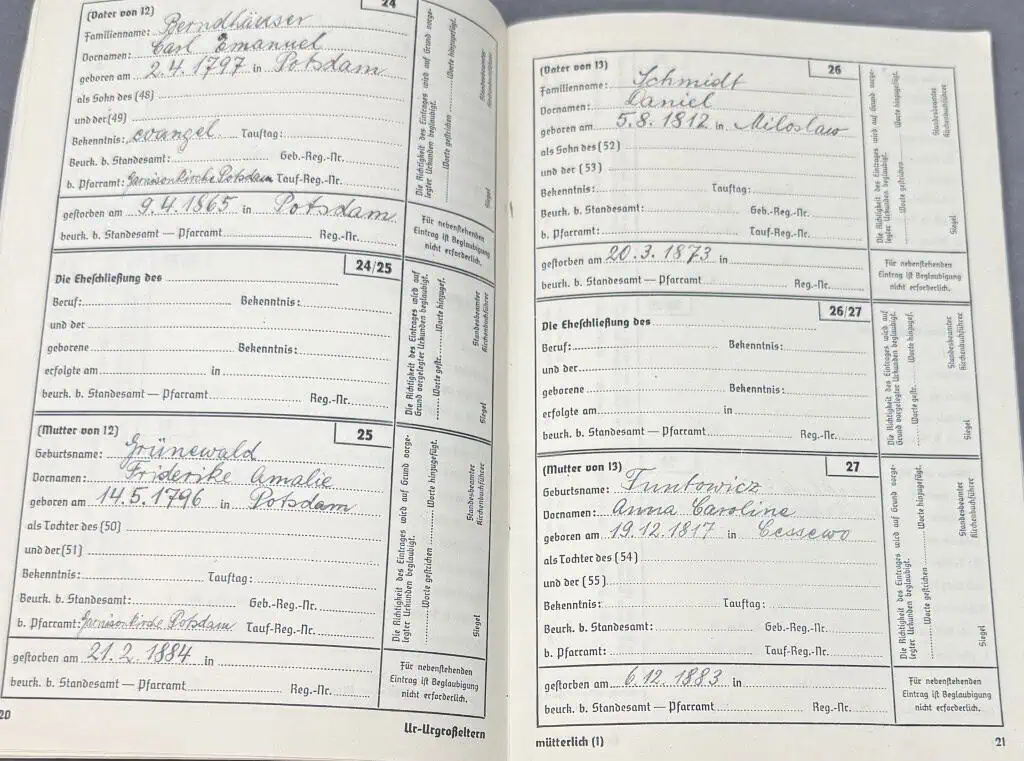 (Vater von 12) 24
Familienname: Berndhäuser
Vornamen: Carl Emanuel
geboren am 2.4.1797 in Potsdam
als Sohn des (48)
und der (49)
Bekenntnis: evangel Tauftag:
Beurk. b. Standesamt: Geb.-Reg.-Nr.
b. Pfarramt: Garnisonkirche Potsdam Tauf-Reg.-Nr.
Die Richtigkeit des Eintrages wird auf Grund vorge-
legter Urkunden beglaubigt.
Worte gestrichen Worte hinzugefügt.
Standesbeamter
Kirchenbuchführer
Siegel
gestorben am 9.4.1865 in Potsdam
beurk. b. Standesamt — Pfarramt Reg.-Nr.
Für nebenstehenden
Eintrag ist Beglaubigung
nicht erforderlich.
24/25
Die Eheschließung des
Beruf: Bekenntnis:
und der
geborene Bekenntnis:
erfolgte am in
beurk. b. Standesamt — Pfarramt Reg.-Nr.
Die Richtigkeit des Eintrages wird auf
Grund vorgelegter Urkunden beglaubigt.
Worte gestr. Worte hinzugef.
Standesbeamter
Kirchenbuchführer
Siegel
(Mutter von 12) 25
Geburtsname: Grünewald
Vornamen: Friderike Amalie
geboren am 14.5.1796 in Potsdam
als Tochter des (50)
und der (51)
Bekenntnis: Tauftag:
Beurk. b. Standesamt: Geb.-Reg.-Nr.
b. Pfarramt: Garnisonkirche Potsdam Tauf-Reg.-Nr.
Die Richtigkeit des Eintrages wird auf Grund vorge-
legter Urkunden beglaubigt.
Worte gestrichen Worte hinzugefügt.
Standesbeamter
Kirchenbuchführer
Siegel
gestorben am 21.2.1884 in
beurk. b. Standesamt — Pfarramt Reg.-Nr.
Für nebenstehenden
Eintrag ist Beglaubigung
nicht erforderlich.
20
Ur-Urgroßeltern
(Vater von 13) 26
Familienname: Schmidt
Vornamen: Daniel
geboren am 5.8.1812 in Miloslaw
als Sohn des (52)
und der (53)
Bekenntnis: Tauftag:
Beurk. b. Standesamt: Geb.-Reg.-Nr.
b. Pfarramt: Tauf-Reg.-Nr.
Die Richtigkeit des Eintrages wird auf Grund vorge-
legter Urkunden beglaubigt.
Worte gestrichen Worte hinzugefügt.
Standesbeamter
Kirchenbuchführer
Siegel
gestorben am 20.3.1873 in
beurk. b. Standesamt — Pfarramt Reg.-Nr.
Für nebenstehenden
Eintrag ist Beglaubigung
nicht erforderlich.
26/27
Die Eheschließung des
Beruf: Bekenntnis:
und der
geborene Bekenntnis:
erfolgte am in
beurk. b. Standesamt — Pfarramt Reg.-Nr.
Die Richtigkeit des Eintrages wird auf
Grund vorgelegter Urkunden beglaubigt.
Worte gestr. Worte hinzugef.
Standesbeamter
Kirchenbuchführer
Siegel
(Mutter von 13) 27
Geburtsname: Tuntowicz
Vornamen: Anna Caroline
geboren am 19.12.1817 in Cessewo
als Tochter des (54)
und der (55)
Bekenntnis: Tauftag:
Beurk. b. Standesamt: Geb.-Reg.-Nr.
b. Pfarramt: Tauf-Reg.-Nr.
Die Richtigkeit des Eintrages wird auf Grund vorge-
legter Urkunden beglaubigt.
Worte gestrichen Worte hinzugefügt.
Standesbeamter
Kirchenbuchführer
Siegel
gestorben am 6.12.1883 in
beurk. b. Standesamt — Pfarramt Reg.-Nr.
Für nebenstehenden
Eintrag ist Beglaubigung
nicht erforderlich.
mütterlich (1)
21